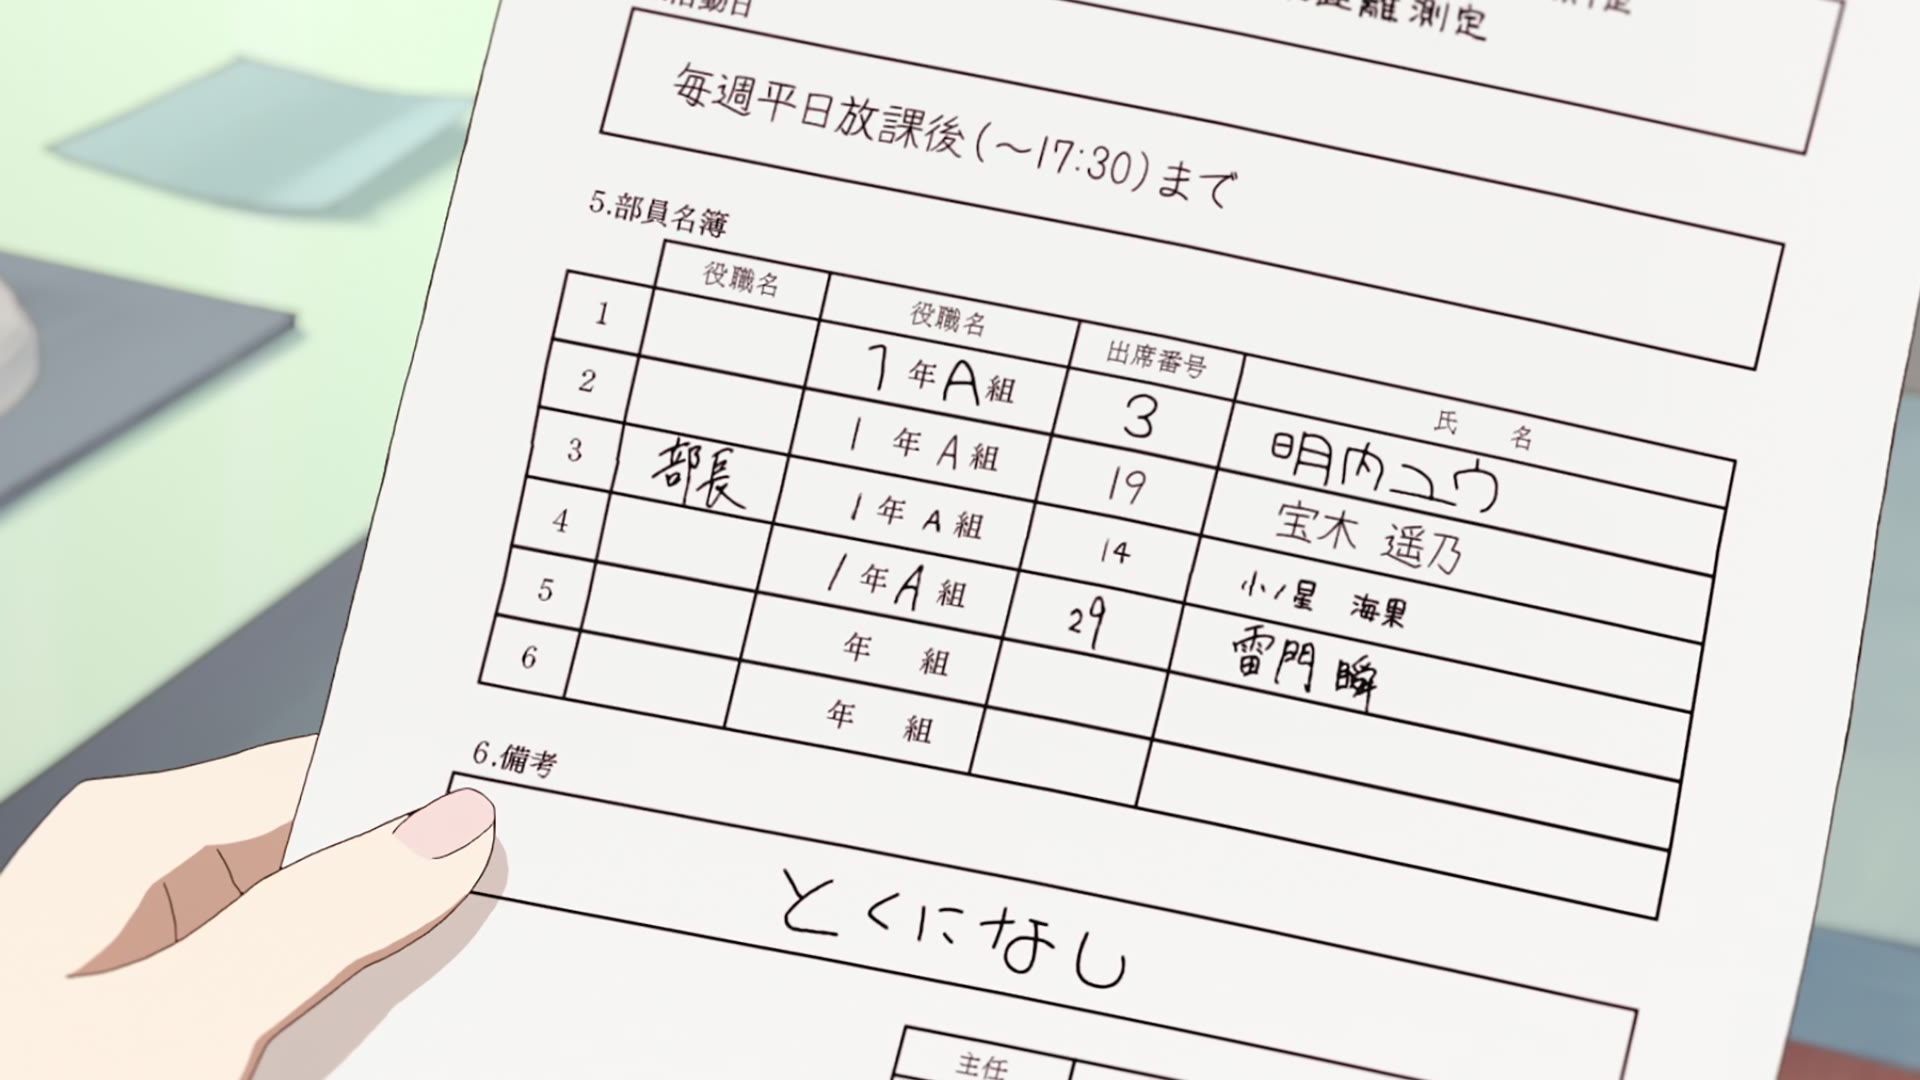 活動日
距離測定
毎週平日放課後(～17:30)まで
5.部員名簿
役職名 役職名 出席番号 氏 名
1 1年A組 3 明内ユウ
2 1年A組 19 宝木 遥乃
3 部長 1年A組 14 小ノ星 海果
4 1年A組 29 雷門 瞬
5 年 組
6 年 組
6.備考
とくになし
主任